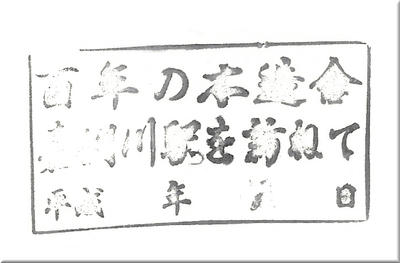 百年の木造舎
嘉例川駅を訪ねて
平成 年 月 日